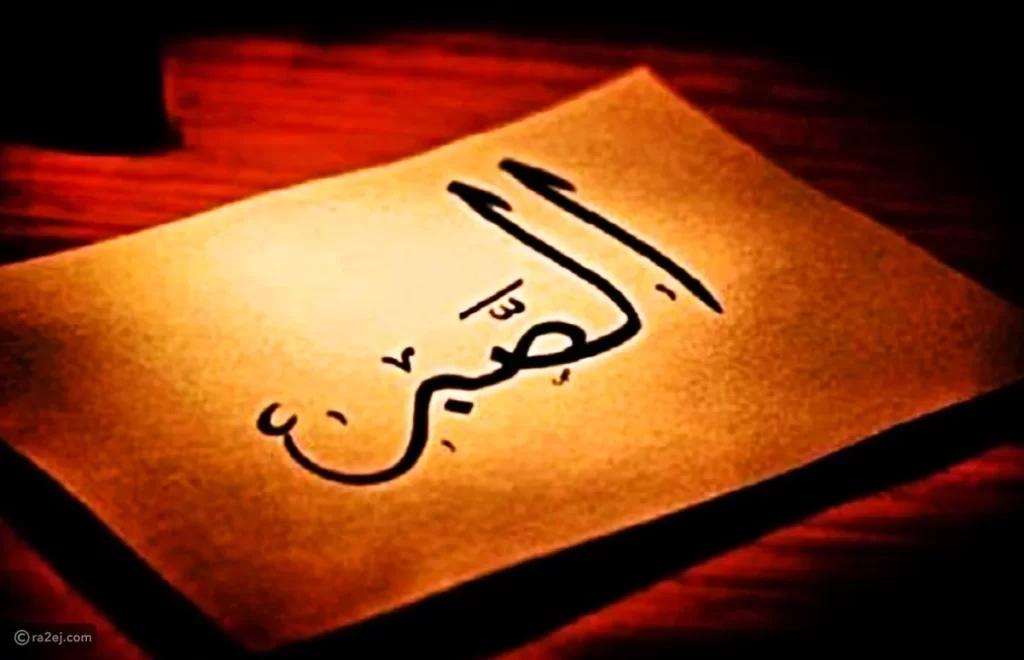 الصَّبْر
© ra2ej.com